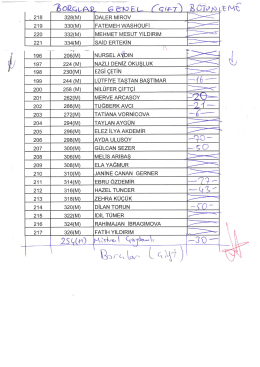 BORÇLAR GENEL (ÇİFT) BÜTÜNLEME
218 328(M) DALER MIROV
219 330(M) FATEMEH WASHOUFI
220 332(M) MEHMET MESUT YILDIRIM
221 334(M) SAİD ERTEKİN
196 206(M) NURSEL AYDIN
197 224 (M) NAZLI DENİZ OKUŞLUK
198 230(M) EZGİ ÇETİN
199 244 (M) LÜTFİYE TAŞTAN BAŞTIMAR -16-
200 256 (M) NİLÜFER ÇİFTÇİ
201 262(M) MERVE ARCASOY -20-
202 266(M) TUĞBERK AVCI -21-
203 272(M) TATIANA VORNICOVA -6-
204 294(M) TAYLAN AYGÜN
205 296(M) ELEZ İLYA AKDEMİR
206 298(M) AYDA ULUSOY -70-
207 300(M) GÜLCAN SEZER -50
208 306(M) MELİS ARIBAŞ
209 308(M) ELA YAĞMUR
210 310(M) JANINE CANAN GERNER
211 314(M) EBRU ÖZDEMİR -77-
212 316(M) HAZEL TUNCER -43-
213 318(M) ZEHRA KÜÇÜK
214 320(M) DİLAN TORUN -50-
215 322(M) İDİL TÜMER
216 324(M) RAHIMAJAN IBRAGIMOVA
217 326(M) FATİH YILDIRIM
254(M) -30-
Borçlar (Çift)